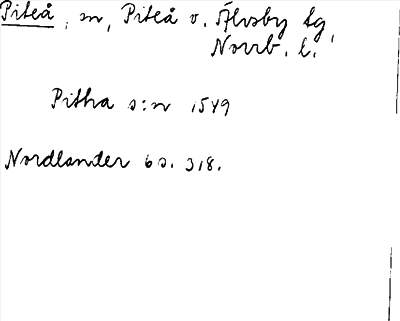 Piteå, sn, Piteå o. Älvsby tg,
Norrb. l.
Pitha s:n 1549
Nordlander 6 s. 318.